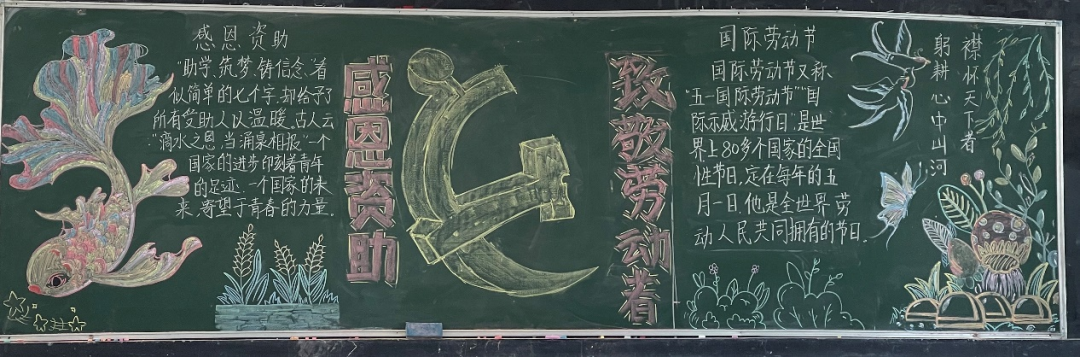 感恩资助
"助学、筑梦、铸信念、着
似简单的七个字,却给予了
所有受助人以温暖。古人云
:"滴水之恩,当涌泉相报"一个
国家的进步印刻着青年
的足迹,一个国家的未
来,寄望于青春的力量。
感恩资助
致敬劳动者
国际劳动节
国际劳动节又称、
"五一国际劳动节""国
际示威游行日",是世
界上80多个国家的全国
性节日,定在每年的五
月一日.他是全世界劳
动人民共同拥有的节日。
襟怀天下者
躬耕心中山河